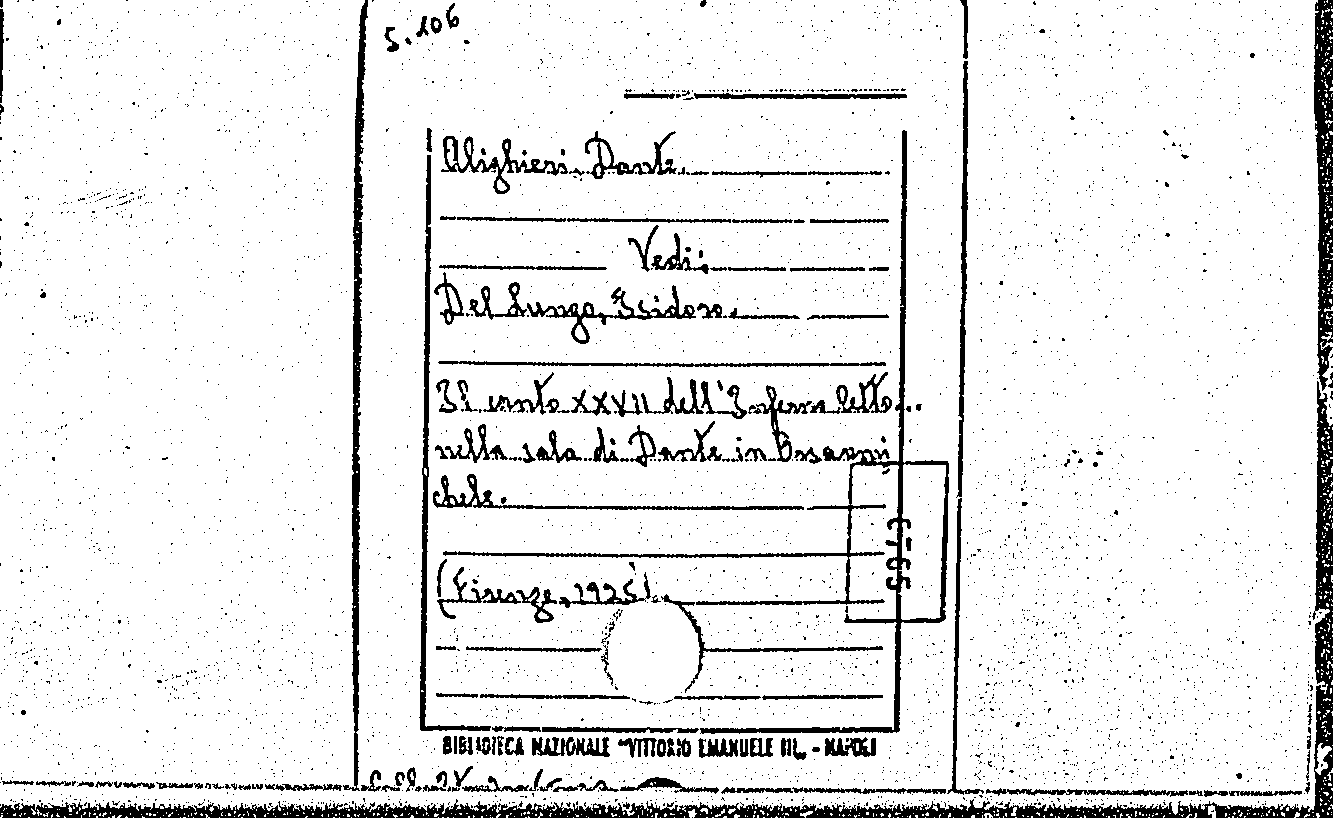 5.106
Alighieri, Dante.
Vedi:
Del Lungo, Isidoro.
Il canto XXVII dell'Inferno letto...
nella sala di Dante in Orsanmi
chele.
(Firenze, 1925).
BIBLIOTECA NAZIONALE "VITTORIO EMANUELE III„ - NAPOLI